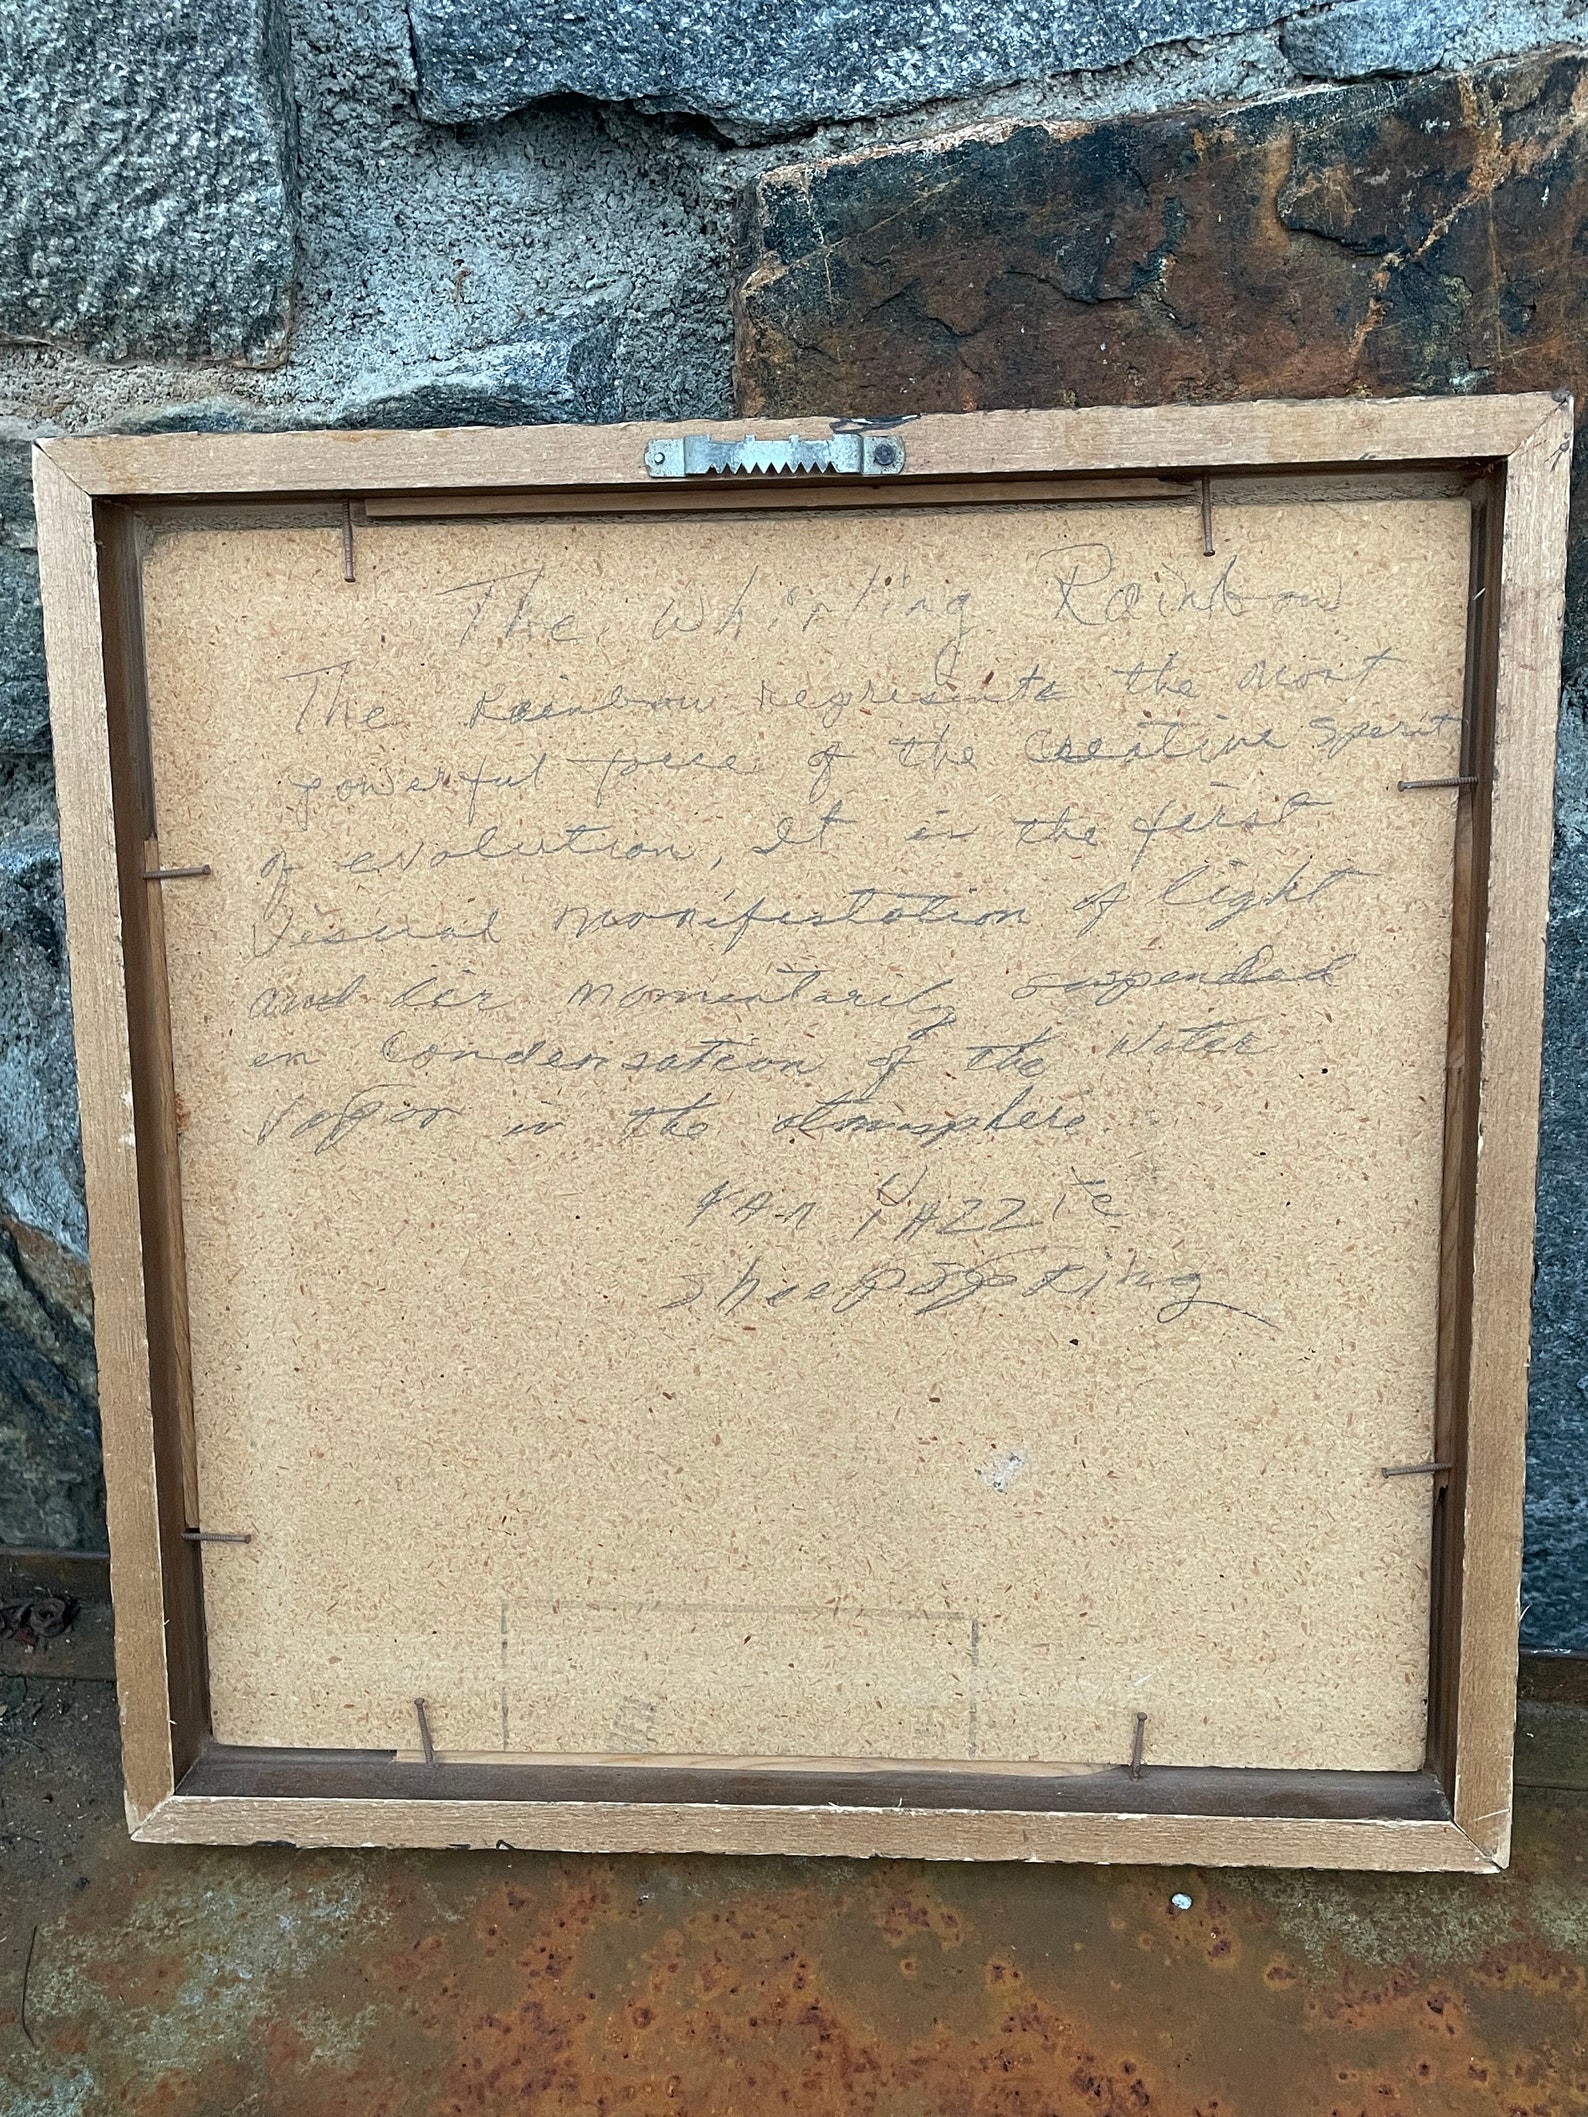 The Whirling Rainbow
The Rainbow represents the most
powerful force of the Creative Spirit
of evolution, It is the first
Visual manifestation of light
and air momentarily suspended
in Condensation of the Water
Vapor in the atmosphere.
YAZZIE
Sheepspring